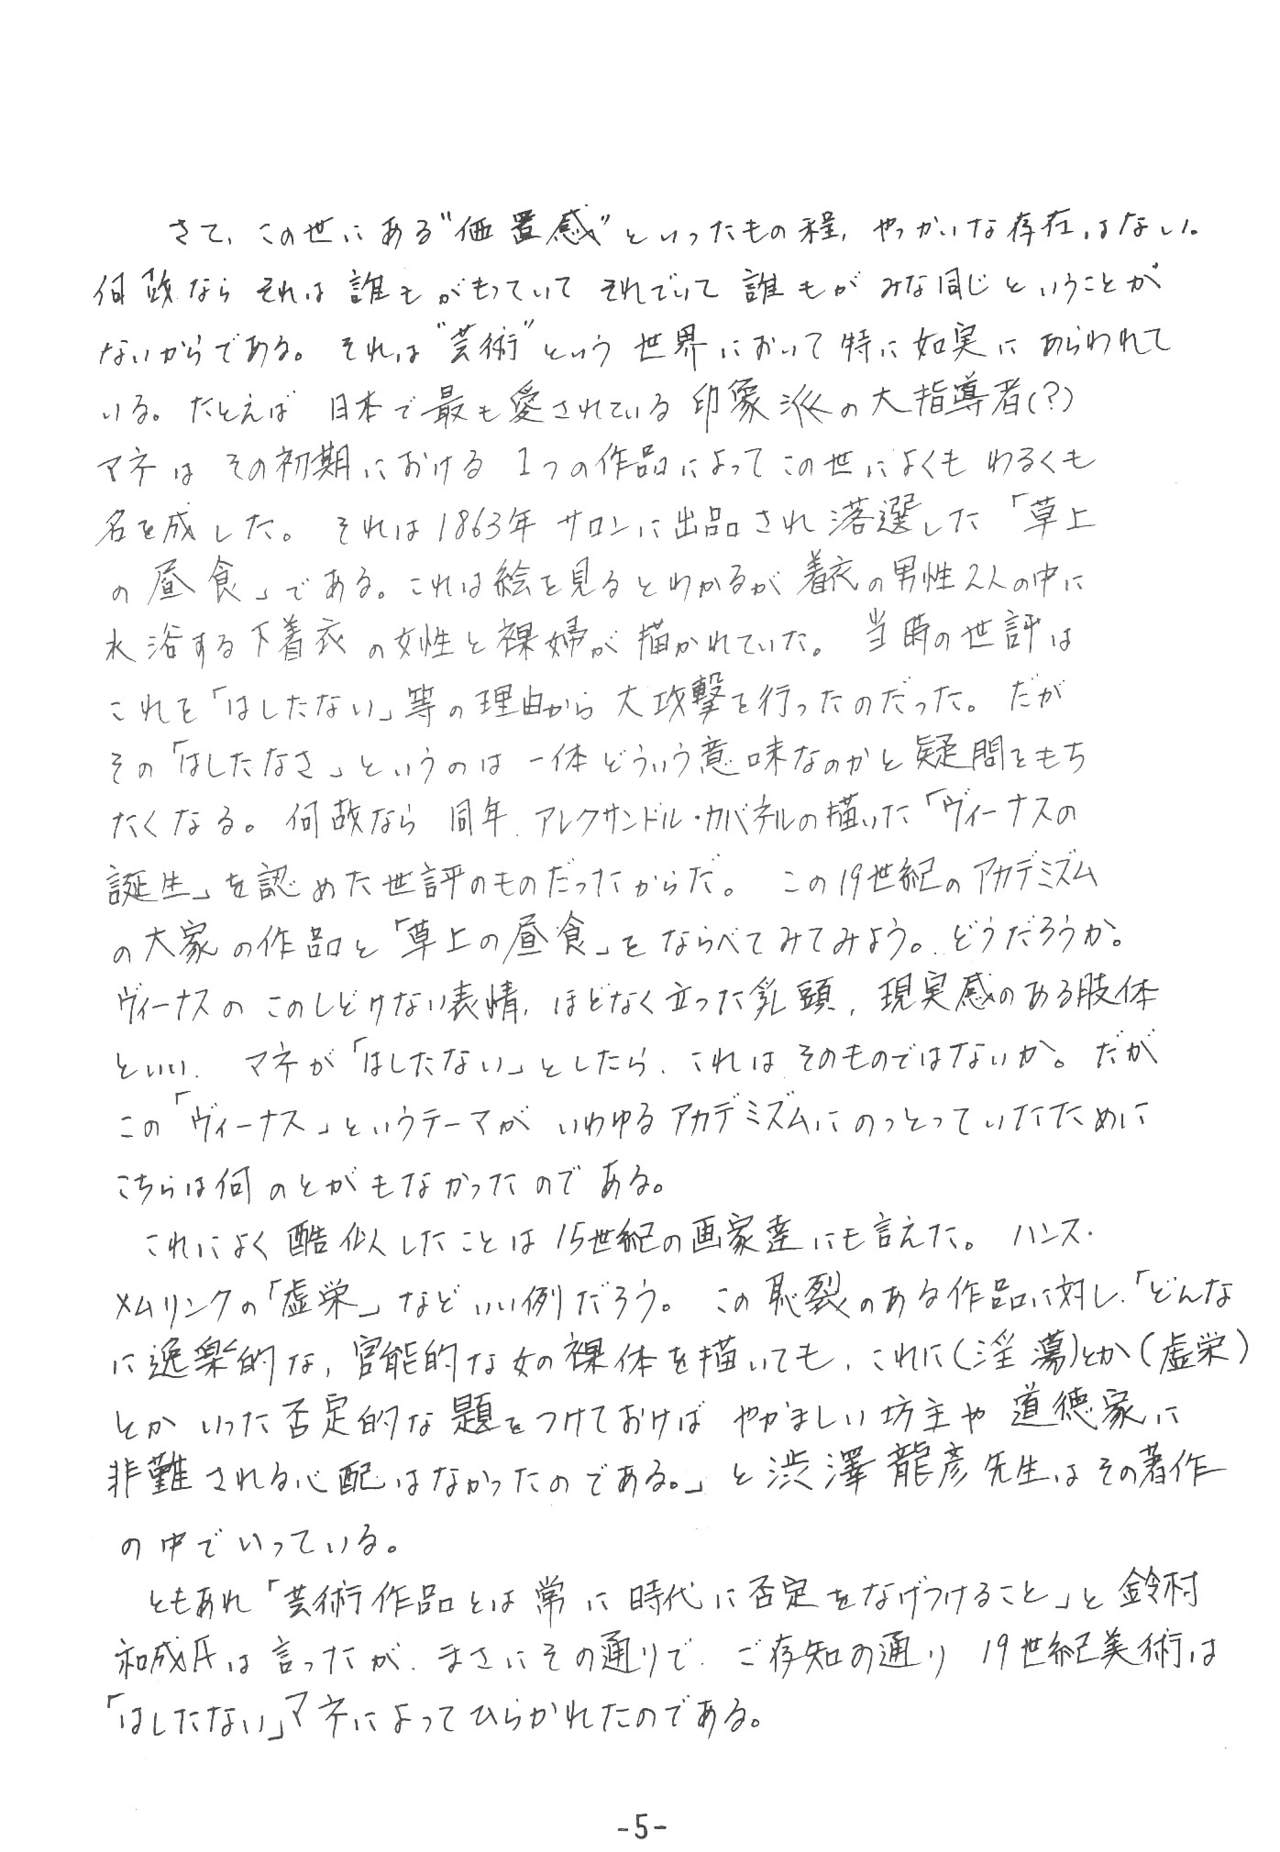 さて、この世にある"価置感"といったもの程、やっかいな存在はない。
何故なら それは 誰もがもっていて それでいて 誰もが みな同じ ということが
ないからである。それは"芸術"という 世界において 特に 如実に あらわれて
いる。たとえば 日本で最も愛されている 印象派の大指導者(?)
マネは その初期における 1つの作品によって この世に よくも わるくも
名を成した。それは1863年 サロンに出品され 落選した 「草上
の昼食」である。これは絵を見るとわかるが 着衣の男性2人の中に
水浴する下着衣の女性と裸婦が描かれていた。 当時の世評は
これを「はしたない」等の理由から 大攻撃を行ったのだった。だが
その「はしたなさ」というのは 一体 どういう意味なのかと 疑問をもち
たくなる。何故なら 同年、アレクサンドル・カバネルの描いた「ヴィーナスの
誕生」を認めた世評のものだったからだ。 この19世紀のアカデミズム
の大家の作品と「草上の昼食」を ならべてみてみよう。どうだろうか。
ヴィーナスの このしどけない表情、ほどなく立った乳頭、現実感のある肢体
といい、 マネが「はしたない」としたら、これは そのものではないか。だが
この「ヴィーナス」というテーマが いわゆる アカデミズムに のっとっていたために
こちらは何のとがもなかったのである。
これによく酷似したことは 15世紀の画家達にも言えた。 ハンス・
メムリンクの「虚栄」など いい例だろう。この恥裂のある作品に対し、「どんな
に逸楽的な、官能的な女の裸体を描いても、これに(淫蕩)とか(虚栄)
とか いった否定的な題をつけておけば やかましい坊主や 道徳家に
非難される心配はなかったのである。」と 渋澤龍彦先生は その著作
の中でいっている。
ともあれ「芸術作品とは 常に 時代に否定をなげつけること」と 鈴村
和成氏は 言ったが、まさにその通りで、ご存知の通り 19世紀美術は
「はしたない」マネによってひらかれたのである。
-5-